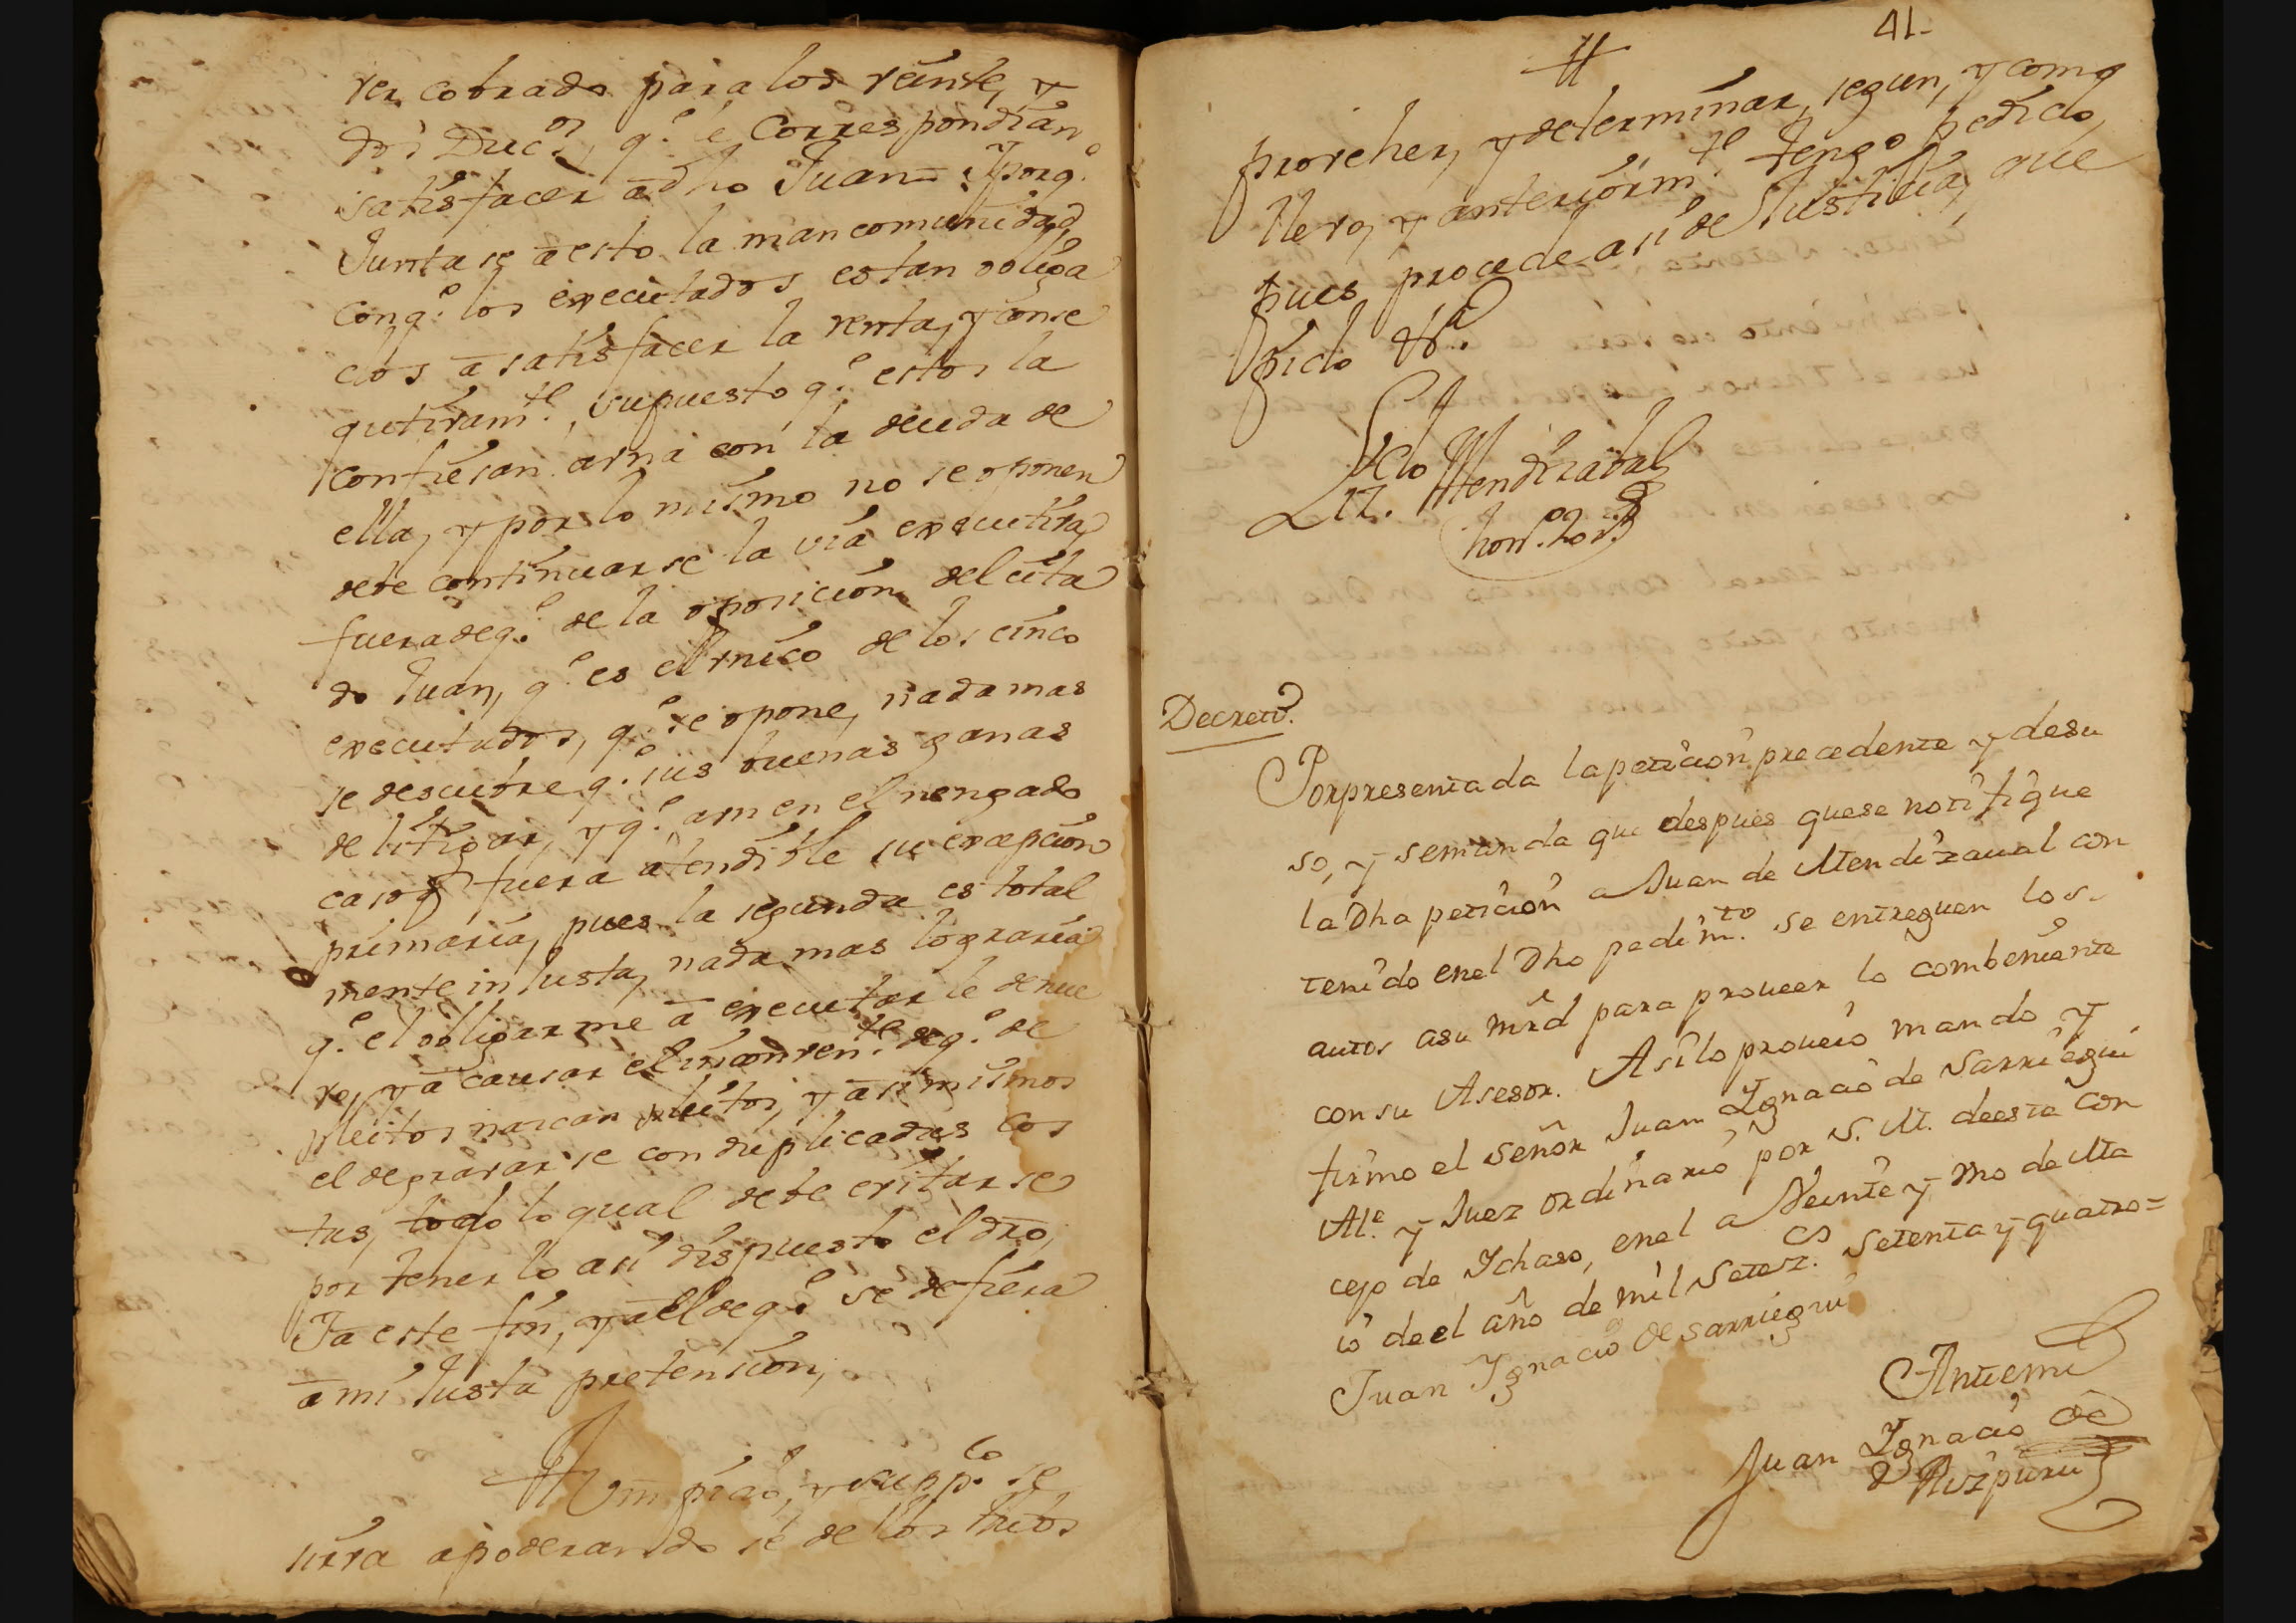 ver cobrado para los veinte, y
dos Duc.os, q.e le correspondian
satisfacer a dho Juan= Yporq.e
Juntase a esto la mancomunidad
conq.e los executados estan obliga
dos a satisfacer la renta, y conse
qutivam.te, supuesto q.e estos la
confiesan con la deuda de
ella, y por lo mismo no se oponen
debe continuarse la via executiva
fuera deq.e de la oposicion del cita
do Juan, q.e es el vnico de los cinco
executados, q.e se opone, nada mas
se descubre q.e sus buenas ganas
de litigar, y q.e aun en el nengado
caso q.e fuera atendible su excepcion
primaria, pues la segunda es total
mente inJusta, nada mas lograria
q.e el obligarme a executarle de nue
vo, y a causar el inconven.te deq.e de
pleitos nazcan pleitos, y a si mismos
el degravarse con duplicadas cos
tas, todo lo qual debe evitarse
por tenerlo asi dispuesto el dro,
Ya este fin, y a el deq.e se defiera
a mi Justa pretension,
A Vm pido, y supp.co se
sirva apoderandose de los Autos
41-
#
proveher, y determinar, segun, y como
llevo, y anteriorm.te tengo pedido,
pues procede asi de Justicia, que
pido &.a
Lcdo
Liz. Mendizabal
hon.os 20 r.s
Decreto.
Por presentada la peticion precedente y desu
so, y semanda que despues quese notifique
la Dha peticion a Juan de Mendizaual con
tenido enel Dho pedim.to se entreguen los
autos asu mrd para proueer lo combeniente
con su Asesor. Asilo proueio mando y
firmo el señor Juan Ignacio de Sarriegui
Al.e y Juez ordinario por S. M. deesta Con
cejo de Ichaso, enel a Veinte y vno de Ma
io de el año de mil Setez.os Setenta y quatro=
Juan Ygnacio de sarriegui
Antemi
Juan Ignacio de
Aizpuru